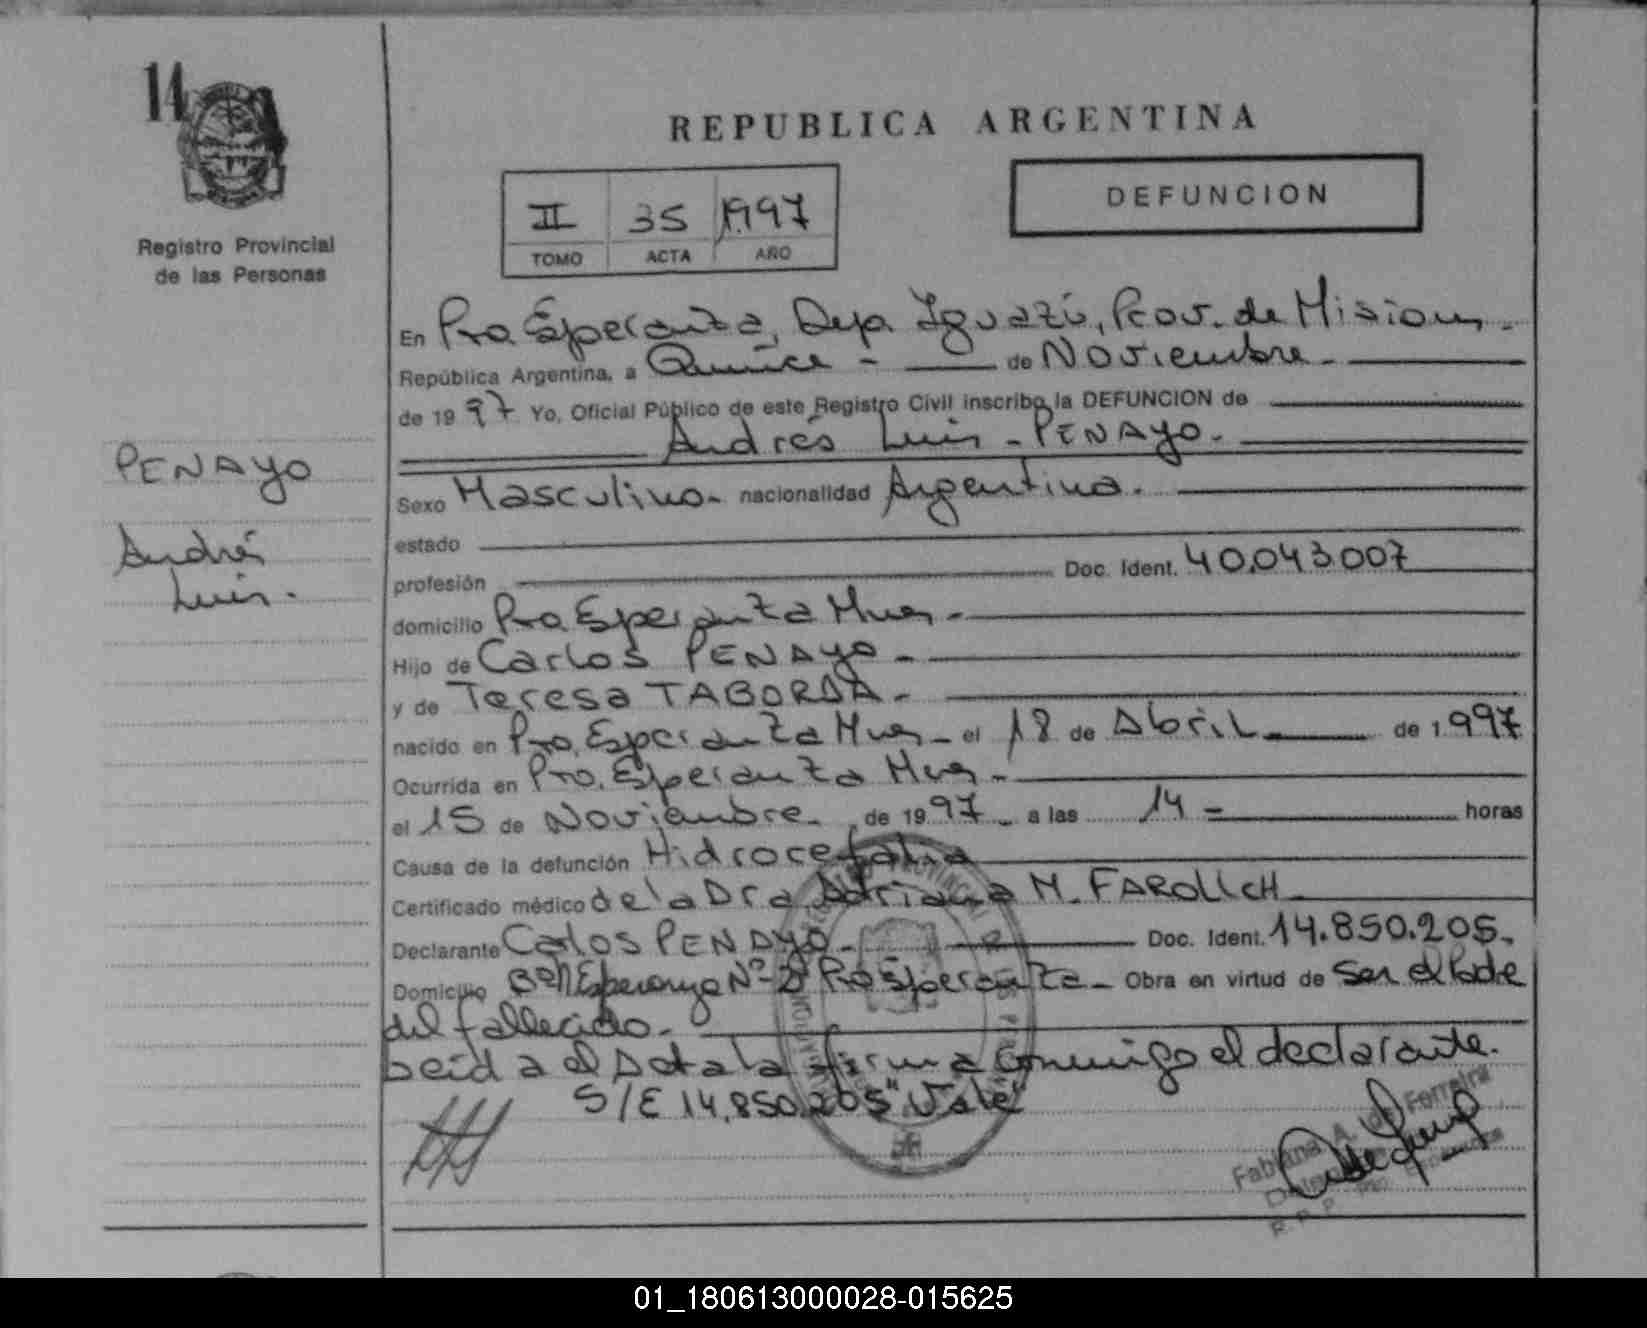 14
Registro Provincial
de las Personas
REPUBLICA ARGENTINA
II 35 1997
TOMO ACTA AÑO
DEFUNCION
En Pto. Esperanza, Dep. Iguazú, Prov. de Misiones.
República Argentina, a Quince - de Noviembre -
de 1997. Yo, Oficial Público de este Registro Civil inscribo la DEFUNCION de
Andrés Luis - PENAYO.
PENAYO
Andrés
Luis.
Sexo Masculino - nacionalidad Argentina.
estado
profesión Doc. Ident. 40.043.007
domicilio Pto. Esperanza Mnes -
Hijo de Carlos PENAYO -
y de Teresa TABORDA -
nacido en Pto. Esperanza Mnes - el 18 de Abril de 1.997
Ocurrida en Pto. Esperanza Mnes -
el 15 de Noviembre - de 1997 - a las 14 - horas
Causa de la defunción Hidrocefalia
Certificado médico de la Dra Adriana M. FAROLICH
Declarante Carlos PENAYO - Doc. Ident. 14.850.205.
Domicilio Bº Esperanza Nº 2 Pto Esperanza - Obra en virtud de Ser el Padre
del fallecido -
Leída el Acta la firma conmigo el declarante.
S/E 14.850.205" Vale
Fabiana A. Ferreira
01_180613000028-015625